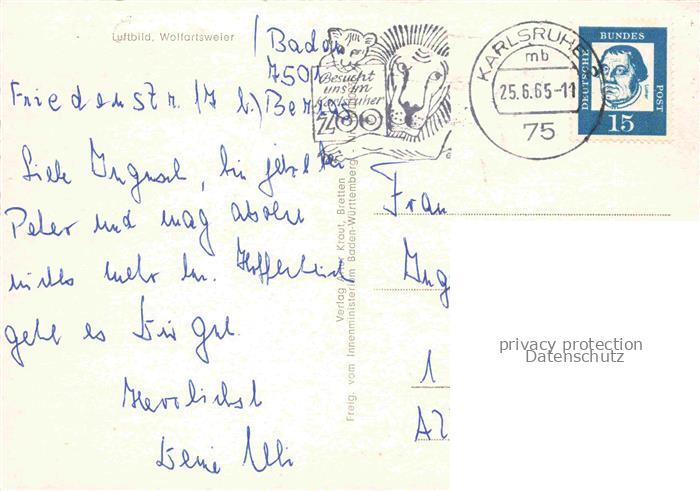 Luftbild, Wolfartsweier
/ Baden
7501
Friedenstr. (7 b.) Berige
Liebe Ingrid, bin jetzt bei
Peter und mag absolut
nichts mehr tun. Hoffentlich
geht es Dir gut.
Herzlichst
Deine Ulli
Besucht
uns im
Karlsruher
ZOO
KARLSRUHE
mb
25.6.65-11
75
DEUTSCHE BUNDES POST
15
Verlag Kraut, Bretten
Freig. vom Innenministerium Baden-Württemberg
Frau
Ing
1
privacy protection
Datenschutz